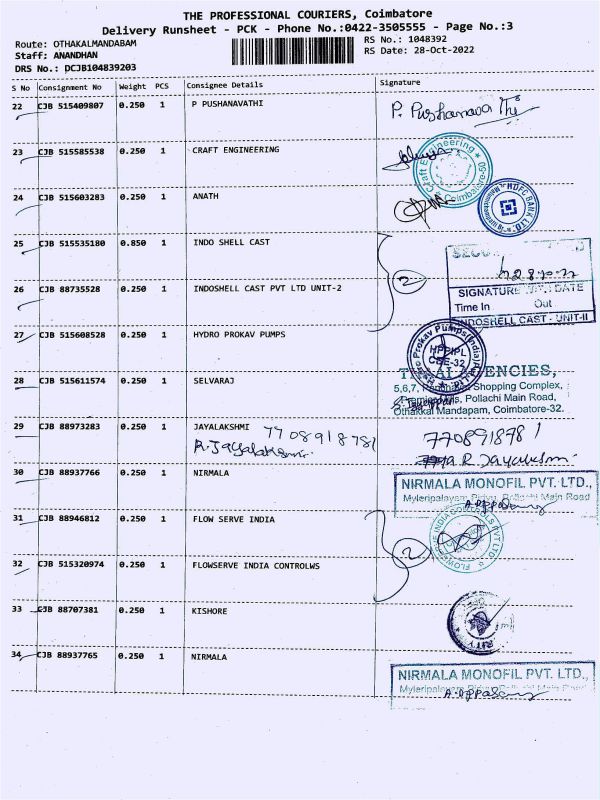 THE PROFESSIONAL COURIERS, Coimbatore
Delivery Runsheet - PCK - Phone No.:0422-3505555 - Page No.:3
Route: OTHAKALMANDABAM
RS No.: 1048392
Staff: ANANDHAN
RS Date: 28-Oct-2022
DRS No.: DCJB104839203
S No Consignment No Weight PCS Consignee Details Signature
22 CJB 515409807 0.250 1 P PUSHANAVATHI
P. Pushanava Thi
23 CJB 515585538 0.250 1 CRAFT ENGINEERING
Craft Engineering * Coimbatore-50
24 CJB 515603283 0.250 1 ANATH
HDFC BANK LTD.
25 CJB 515535180 0.850 1 INDO SHELL CAST
2
26 CJB 88735528 0.250 1 INDOSHELL CAST PVT LTD UNIT-2
SIGNATURE DATE
Time In Out
INDOSHELL CAST - UNIT-II
27 CJB 515608528 0.250 1 HYDRO PROKAV PUMPS
Prokav Pumps (India)
HPPIPL
CBE-32
28 CJB 515611574 0.250 1 SELVARAJ
AGENCIES,
5,6,7, Shopping Complex,
Pollachi Main Road,
Othakal Mandapam, Coimbatore-32.
29 CJB 88973283 0.250 1 JAYALAKSHMI 7708918781
R. Jayalakshmi
7708918781
R Jayalakshmi
30 CJB 88937766 0.250 1 NIRMALA
NIRMALA MONOFIL PVT. LTD.,
Myleripalayam Pirivu, Pollachi Main Road
31 CJB 88946812 0.250 1 FLOW SERVE INDIA
FLOWSERVE INDIA CONTROLS PVT LTD
2
32 CJB 515320974 0.250 1 FLOWSERVE INDIA CONTROLWS
33 CJB 88707381 0.250 1 KISHORE
34 CJB 88937765 0.250 1 NIRMALA
NIRMALA MONOFIL PVT. LTD.,
Myleripalayam Pollachi Main Road